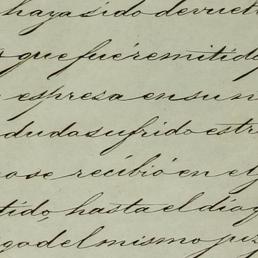 haya sido devuelt
que fué remitido
espresa en su n
duda sufrido estr
ose recibió en el j
tido, hasta el dia 9
go del mismo juz